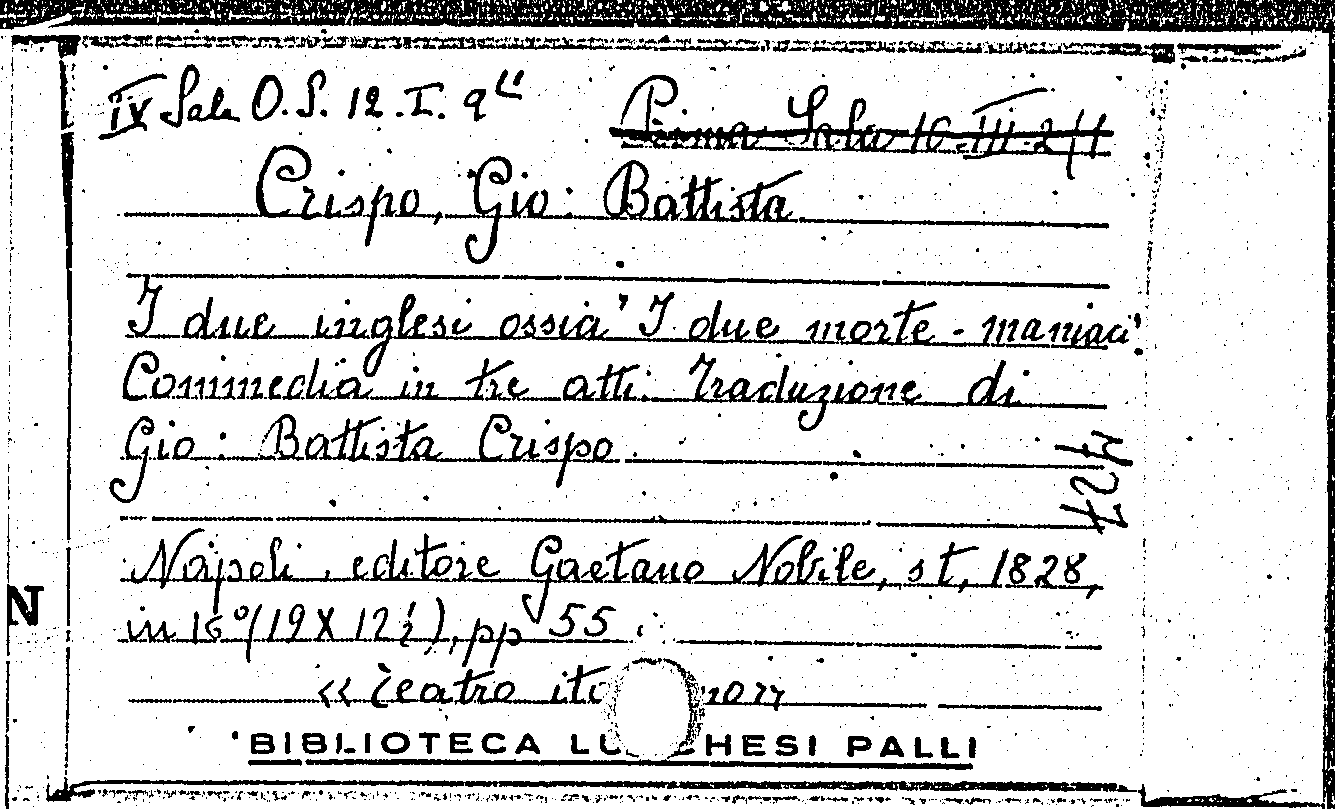 IV Sala O.S. 12. I. 9
Prima Sala 16. III. 2
Crispo, Gio: Battista
I due inglesi ossia "I due morte-maniaci"
Commedia in tre atti. Traduzione di
Gio: Battista Crispo.
Napoli, editore Gaetano Nobile, st, 1828,
in 16° (19 X 12½), pp 55
« Teatro ita no »
BIBLIOTECA LU CHESI PALLI
N